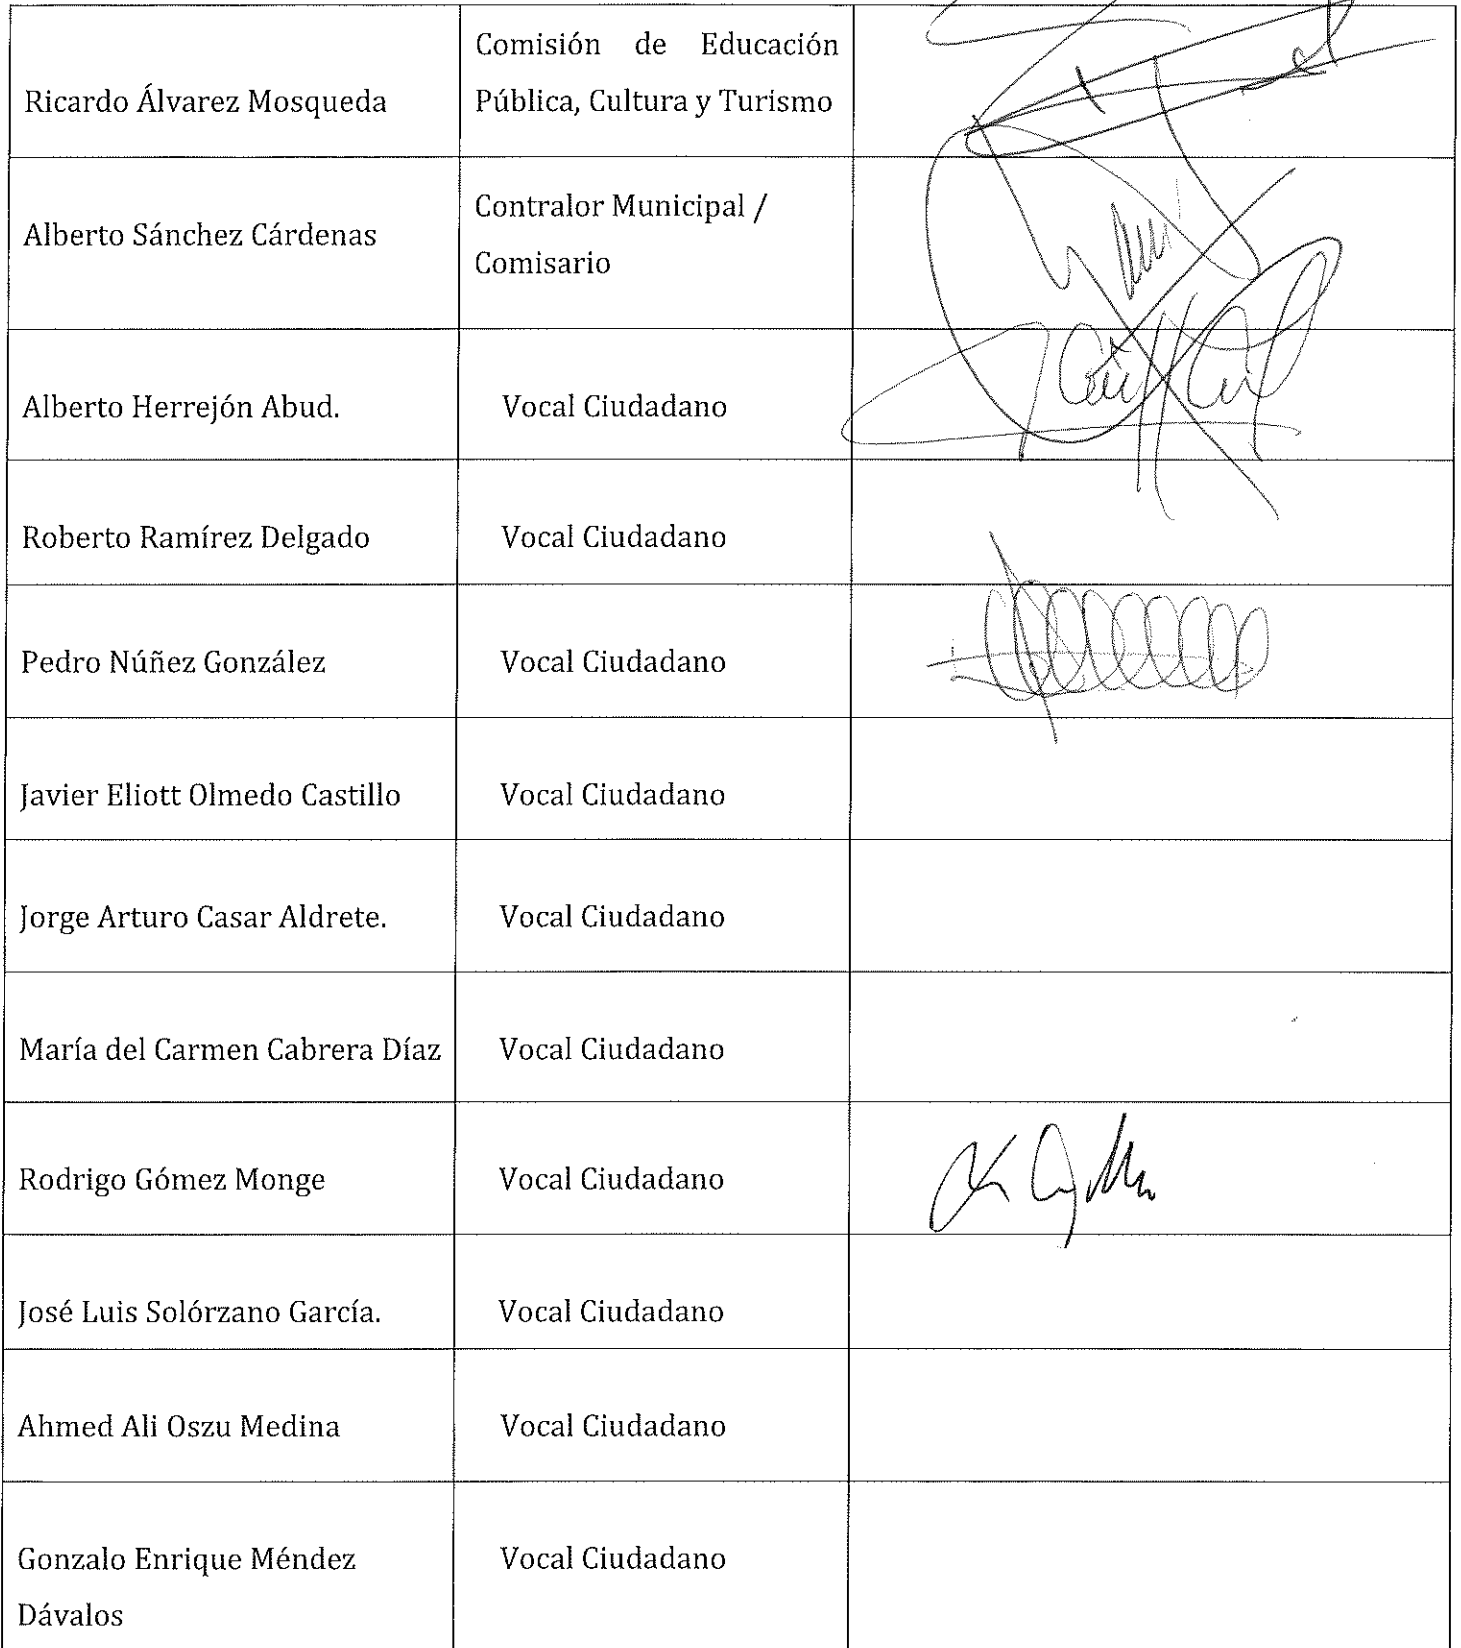 Ricardo Álvarez Mosqueda
Comisión de Educación
Pública, Cultura y Turismo
Alberto Sánchez Cárdenas
Contralor Municipal /
Comisario
Alberto Herrejón Abud.
Vocal Ciudadano
Roberto Ramírez Delgado
Vocal Ciudadano
Pedro Núñez González
Vocal Ciudadano
Javier Eliott Olmedo Castillo
Vocal Ciudadano
Jorge Arturo Casar Aldrete.
Vocal Ciudadano
María del Carmen Cabrera Díaz
Vocal Ciudadano
Rodrigo Gómez Monge
Vocal Ciudadano
José Luis Solórzano García.
Vocal Ciudadano
Ahmed Ali Oszu Medina
Vocal Ciudadano
Gonzalo Enrique Méndez
Dávalos
Vocal Ciudadano